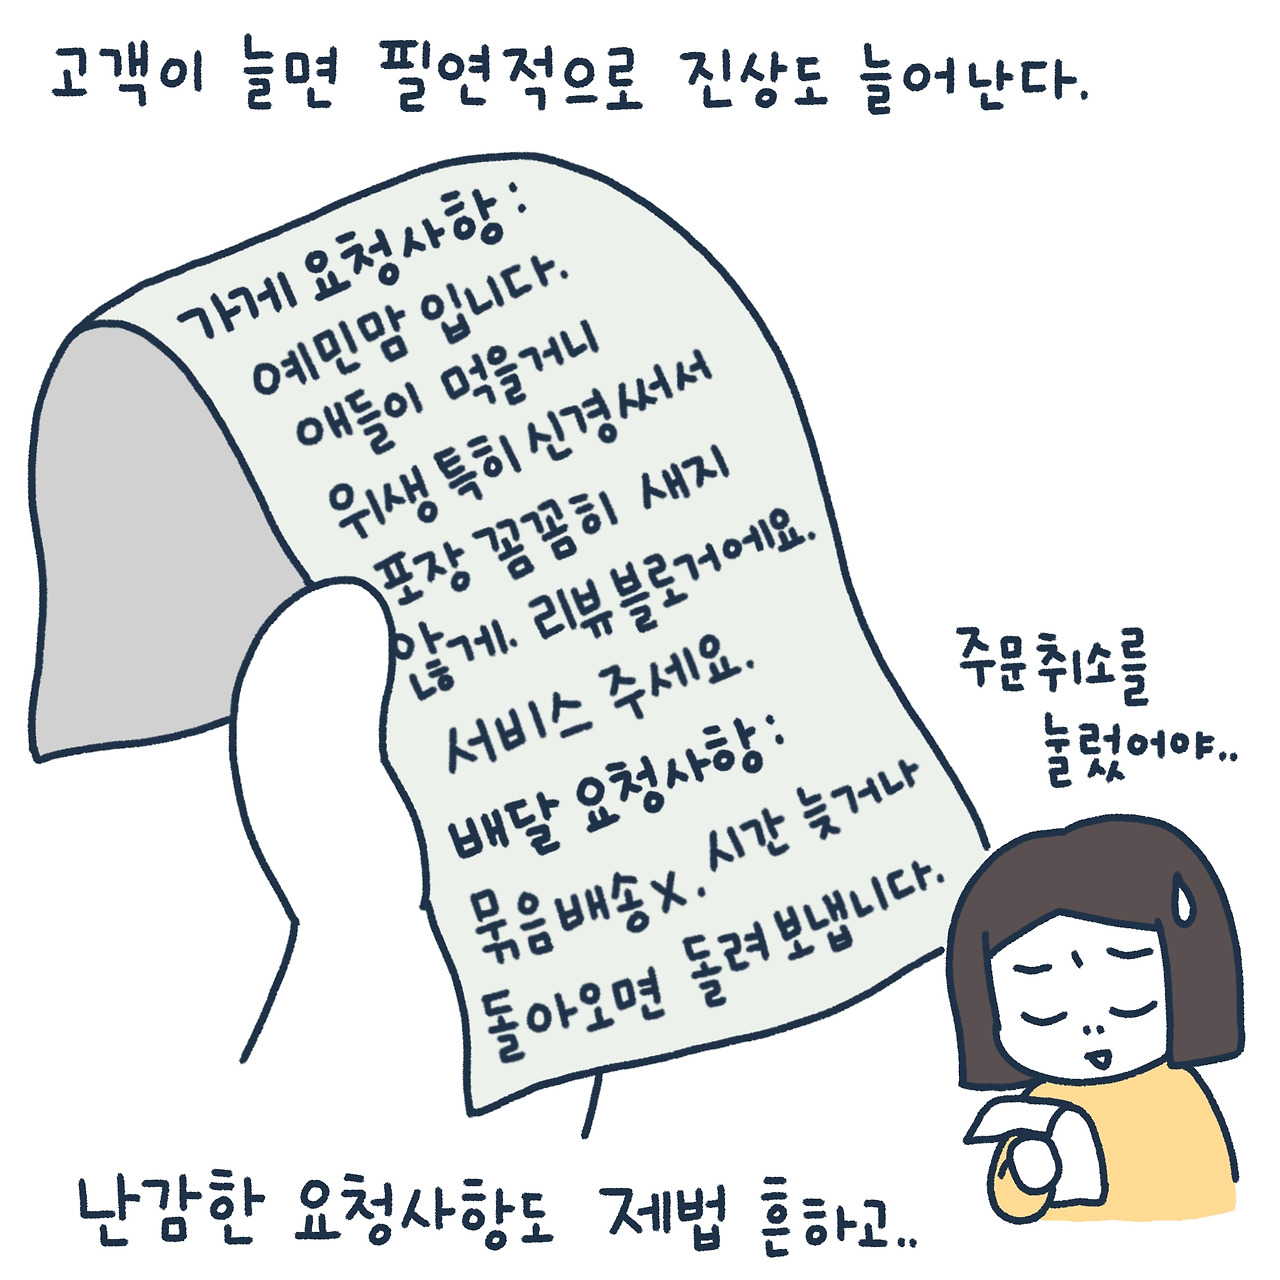 고객이 늘면 필연적으로 진상도 늘어난다.
가게 요청사항:
예민맘 입니다.
애들이 먹을거니
위생 특히 신경써서
포장 꼼꼼히 새지
않게. 리뷰블로거예요.
서비스 주세요.
배달 요청사항:
묶음배송X. 시간 늦거나
돌아오면 돌려보냅니다.
주문취소를
눌렀어야..
난감한 요청사항도 제법 흔하고..